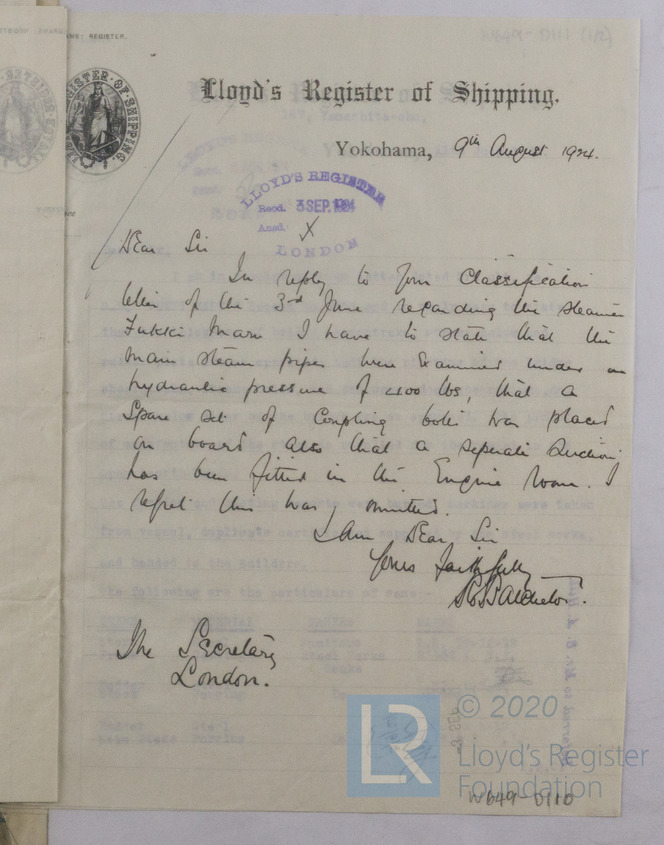 W649-0111 (1/2)
Lloyd's Register of Shipping.
Yokohama, 9th August 1924.
LLOYD'S REGISTER
Recd. 3 SEP. 1924
Ansd.
LONDON
Dear Sir
In reply to your Classification
letter of the 3rd June regarding the steamer
Fukki Maru I have to state that the
main steam pipes were examined under an
hydraulic pressure of 400 lbs, that a
spare set of coupling bolts was placed
on board also that a seperate suction
has been fitted in the Engine Room. I
regret this was omitted.
I am Dear Sir
Yours faithfully
The Secretary
London.
LR
© 2020
Lloyd's Register
Foundation
W649-0110